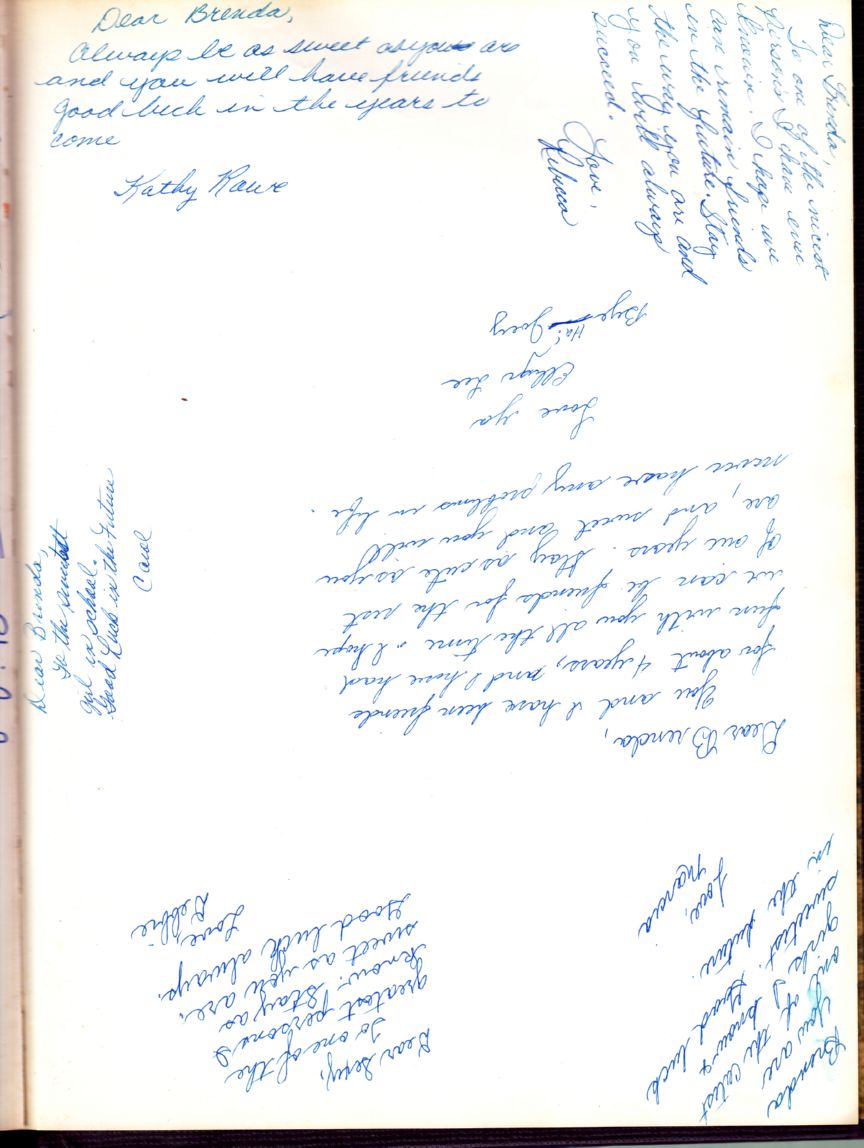 Dear Brenda,
Always be as sweet as you are
and you will have friends
good luck in the years to
come
Kathy Rowe
Dear Brenda,
To one of the nicest
persons I have ever
known. I hope we
can remain friends
in the future. Stay
the way you are and
you will always
succeed.
Love,
Rebecca
Dear Brenda,
You and I have been friends
for about 4 years, and I have had
fun with you all the time. I hope
we can be friends for the rest
of our years. Stay as cute as you
are, and sweet and you will
never have any problems in life.
Love ya
Lee
Bye Joey
Ha!
Dear Brenda,
To the sweetest
girl in school.
Good Luck in the Future
Carol
Dear Sexy,
To one of the
greatest persons I
know. Stay as
sweet as you are.
Good luck always.
Love,
Debbie
Brenda
You are
one of the cutist
girls I know &
sweetist. Good luck
in the future.
Love,
Marcia